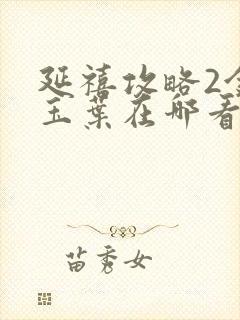 延禧攻略2金
玉葉在哪看
苗秀女